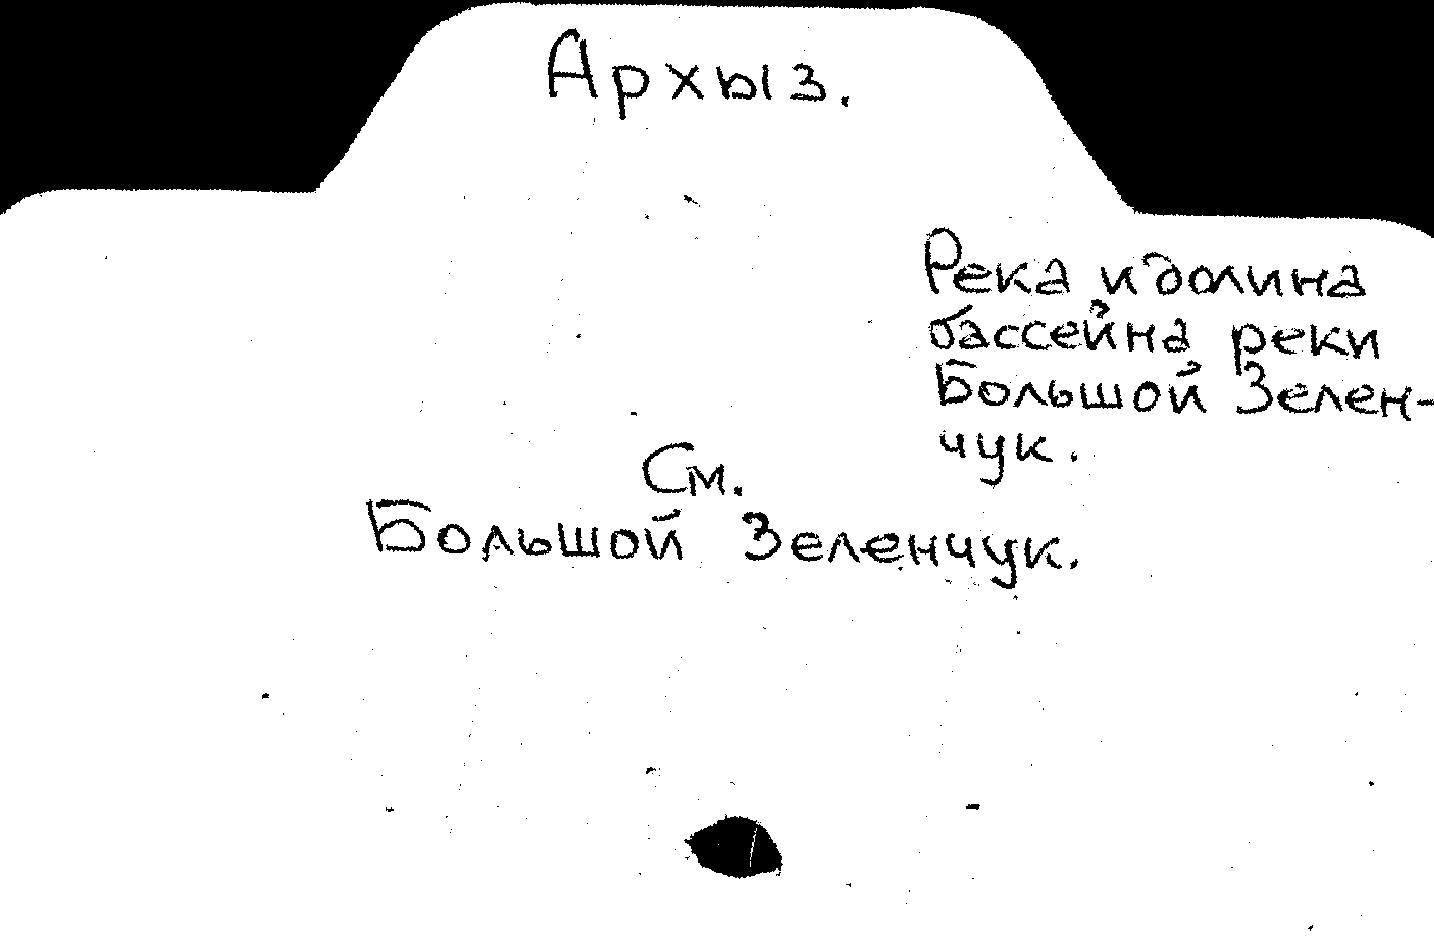 Архыз.
Река и долина
бассейна реки
Большой Зелен-
чук.
См.
Большой Зеленчук.